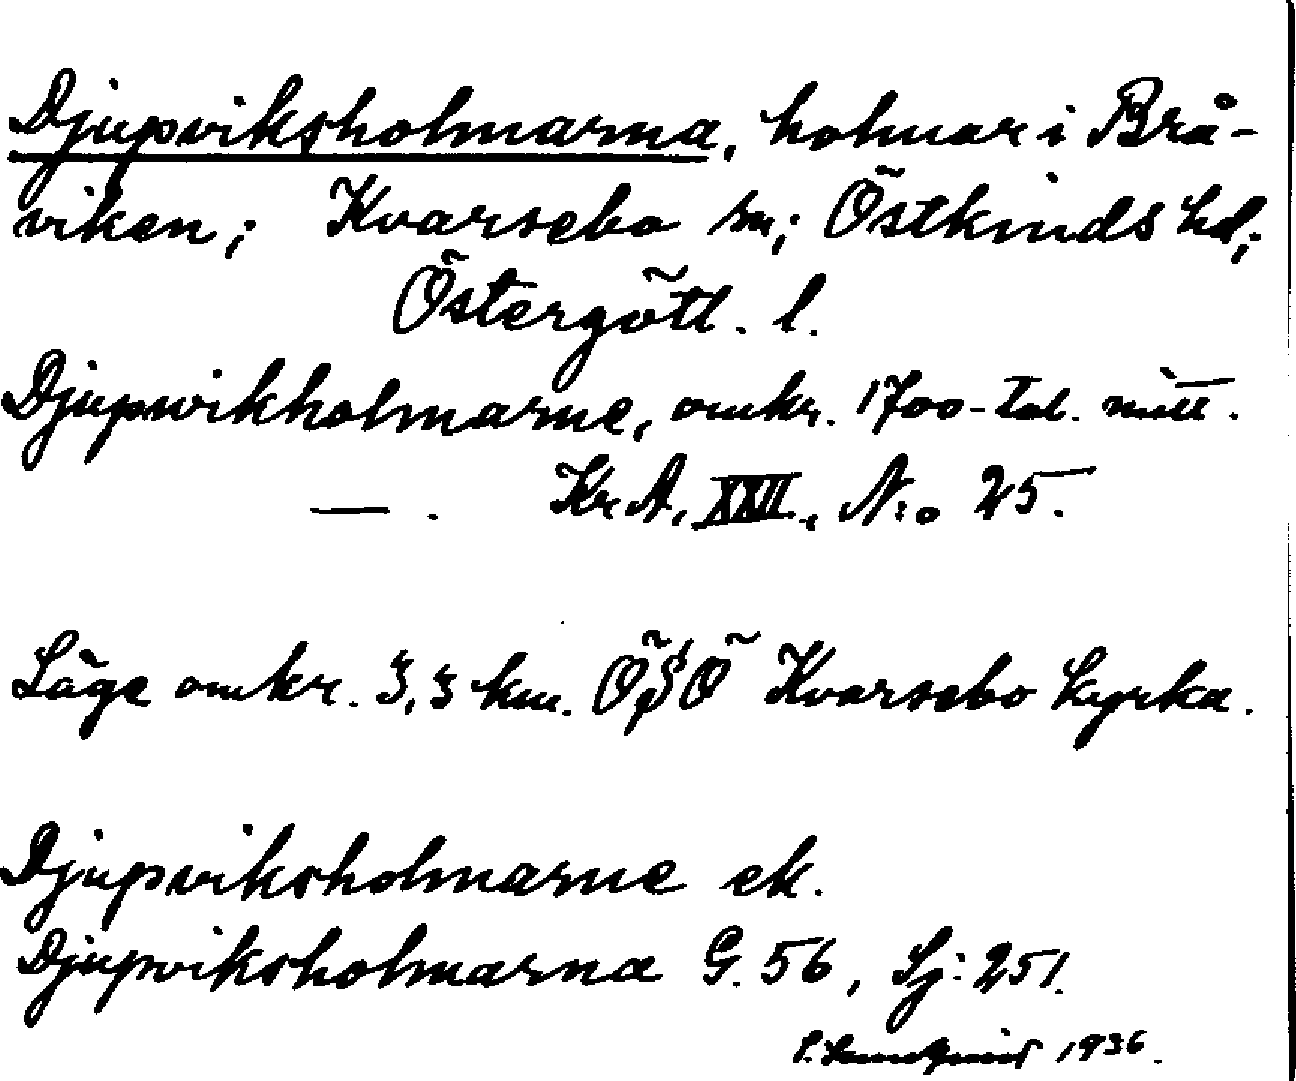 Djupviksholmarna, holmar i Brå-
viken; Kvarsebo sn; Östkinds hd;
Östergötl. l.
Djupwikholmarne, omkr. 1700-tal. mitt.
— . KrA, XXII, N:o 25.
Läge omkr. 3,3 km. ÖSÖ Kvarsebo kyrka.
Djupviksholmarne ek.
Djupviksholmarna G. 56, Sj: 251.
1936.